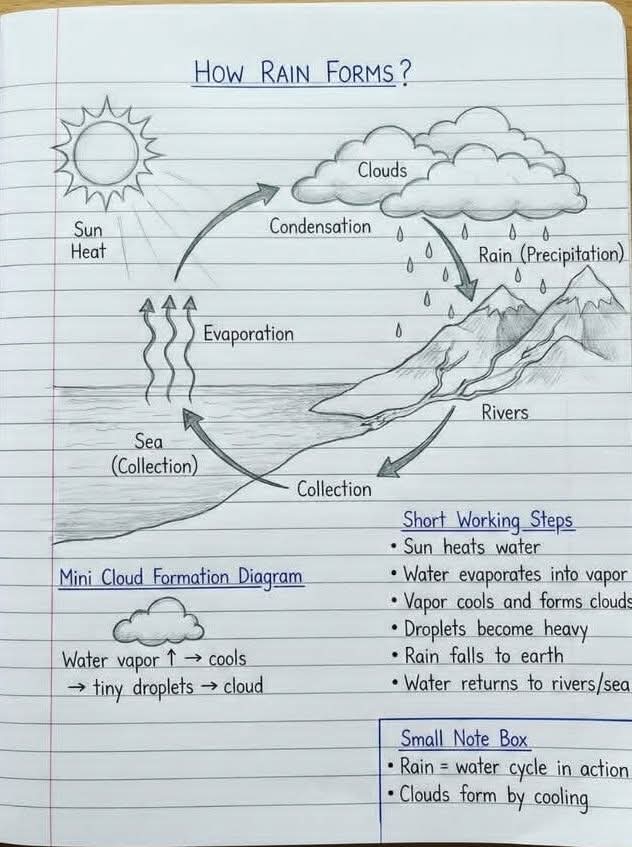 HOW RAIN FORMS?
Sun
Heat
Clouds
Condensation
Rain (Precipitation)
Evaporation
Sea
(Collection)
Rivers
Collection
Mini Cloud Formation Diagram
Water vapor ↑ → cools
→ tiny droplets → cloud
Short Working Steps
• Sun heats water
• Water evaporates into vapor
• Vapor cools and forms clouds
• Droplets become heavy
• Rain falls to earth
• Water returns to rivers/sea
Small Note Box
• Rain = water cycle in action
• Clouds form by cooling